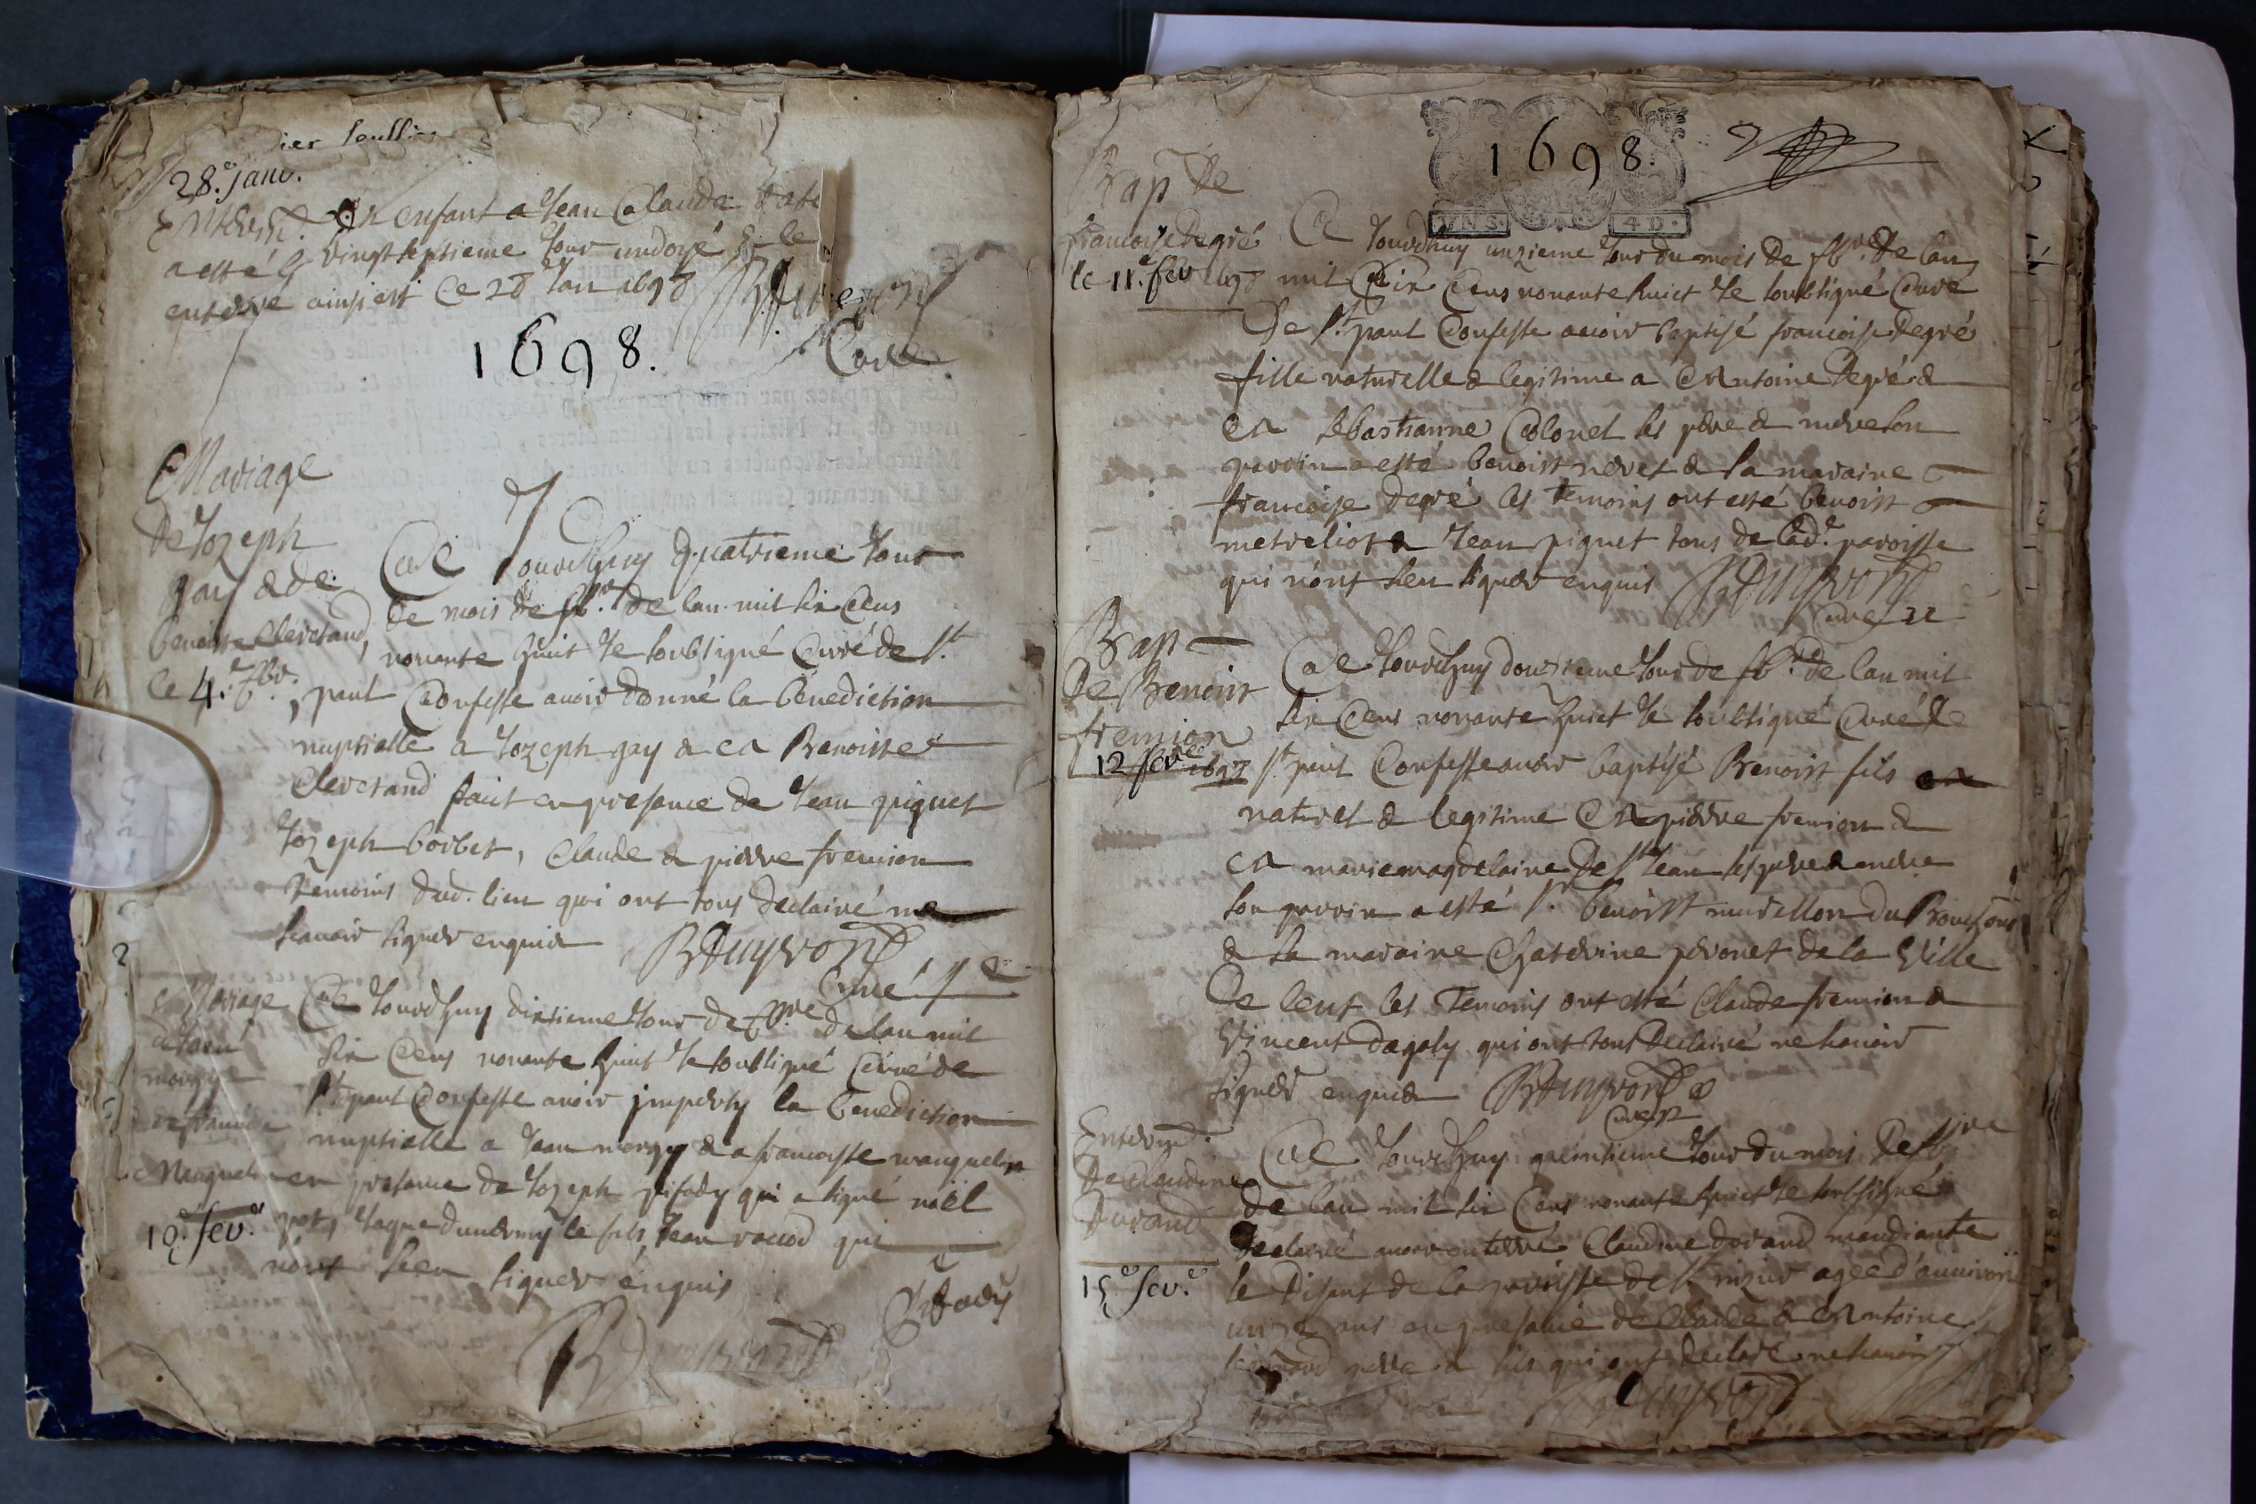 28.e janv.
Enterrt. Un enfant a Jean Claude
a esté le vingtseptieme Jour undoyé & le
enterre ainsi est Ce 28 Jan 1698
Curé
1698.
Mariage
De Jozeph
gay & de
benoiste Clerctand,
le 4.e fbr.
Ce Jourdhuy quatrieme Jour
de mois de fbr. de lan mil six Cens
nonante huit Je soubsigné Curé de St.
paul Confesse avoir donné la benediction
nuptialle a Jozeph gay & ea Benoiste
Clerctand faict en presance de Jean piquet
Jozeph borbet, Claude & pierre fremion
temoins dud. lieu qui ont tous declairé ne
scavoir signer enquis
Curé
Mariage
de Jean
morgy
Manguelin
10.e fev.r
Ce Jourdhuy dixieme Jour de fbre de lan mil
six Cens nonante huit Je soubsigné Curé de
St. paul Confesse avoir jmperty la benediction
nuptialle a Jean morgy & a francoisse manguelin
en presance de Jozeph pifady qui a signé noël
Jaque le fils Jean qui
n'ont sceu signer enquis
Pifady
1698.
Bap De
francoise degré
le 11.e fev 1698
Ce Jourdhuy unzieme Jour du mois de fbr. de lan
mil six Cens nonante huict Je soubsigné Curé
De St. paul Confesse avoir baptisé francoise degré
fille naturelle & legitime a Antoine degré &
ea sebastianne Colonel ses pere & mere son
parroin a esté benoist neret & la maraine
francoise degré les temoins ont esté benoist
metreliot & Jean piquet tous de lad. paroisse
qui n'ont sceu signer enquis
Curé
Bap
De Benoist
fremion
12 fev.e 1697
Ce Jourdhuy douzieme Jour de fbr. de lan mil
six Cens nonante huict Je soubsigné Curé De
St. paul Confesse avoir baptisé Benoist fils
naturel & legitime a pierre fremion &
ea marie magdelaine De St Jean ses pere & mere
son parroin a esté Sr. benoist murellon du
& la maraine Chaterine peronet de la Ville
De lent les temoins ont esté Claude fremion &
Vincent dagaly qui ont tous declairé ne scavoir
signer enquis
Curé
Enterrt.
De claudine
Durand
15.e fev.e
Ce Jourdhuy quinzieme Jour du mois De fbre
de lan mil six Cens nonante huict Je soubsigné
declairé avoir enterré Claudine dorand mandiante
se disant de la paroisse de St. nizier agee d'anviron
unze ans en presance de Claude & Antoine
pere & fils qui ont declaré ne scavoir